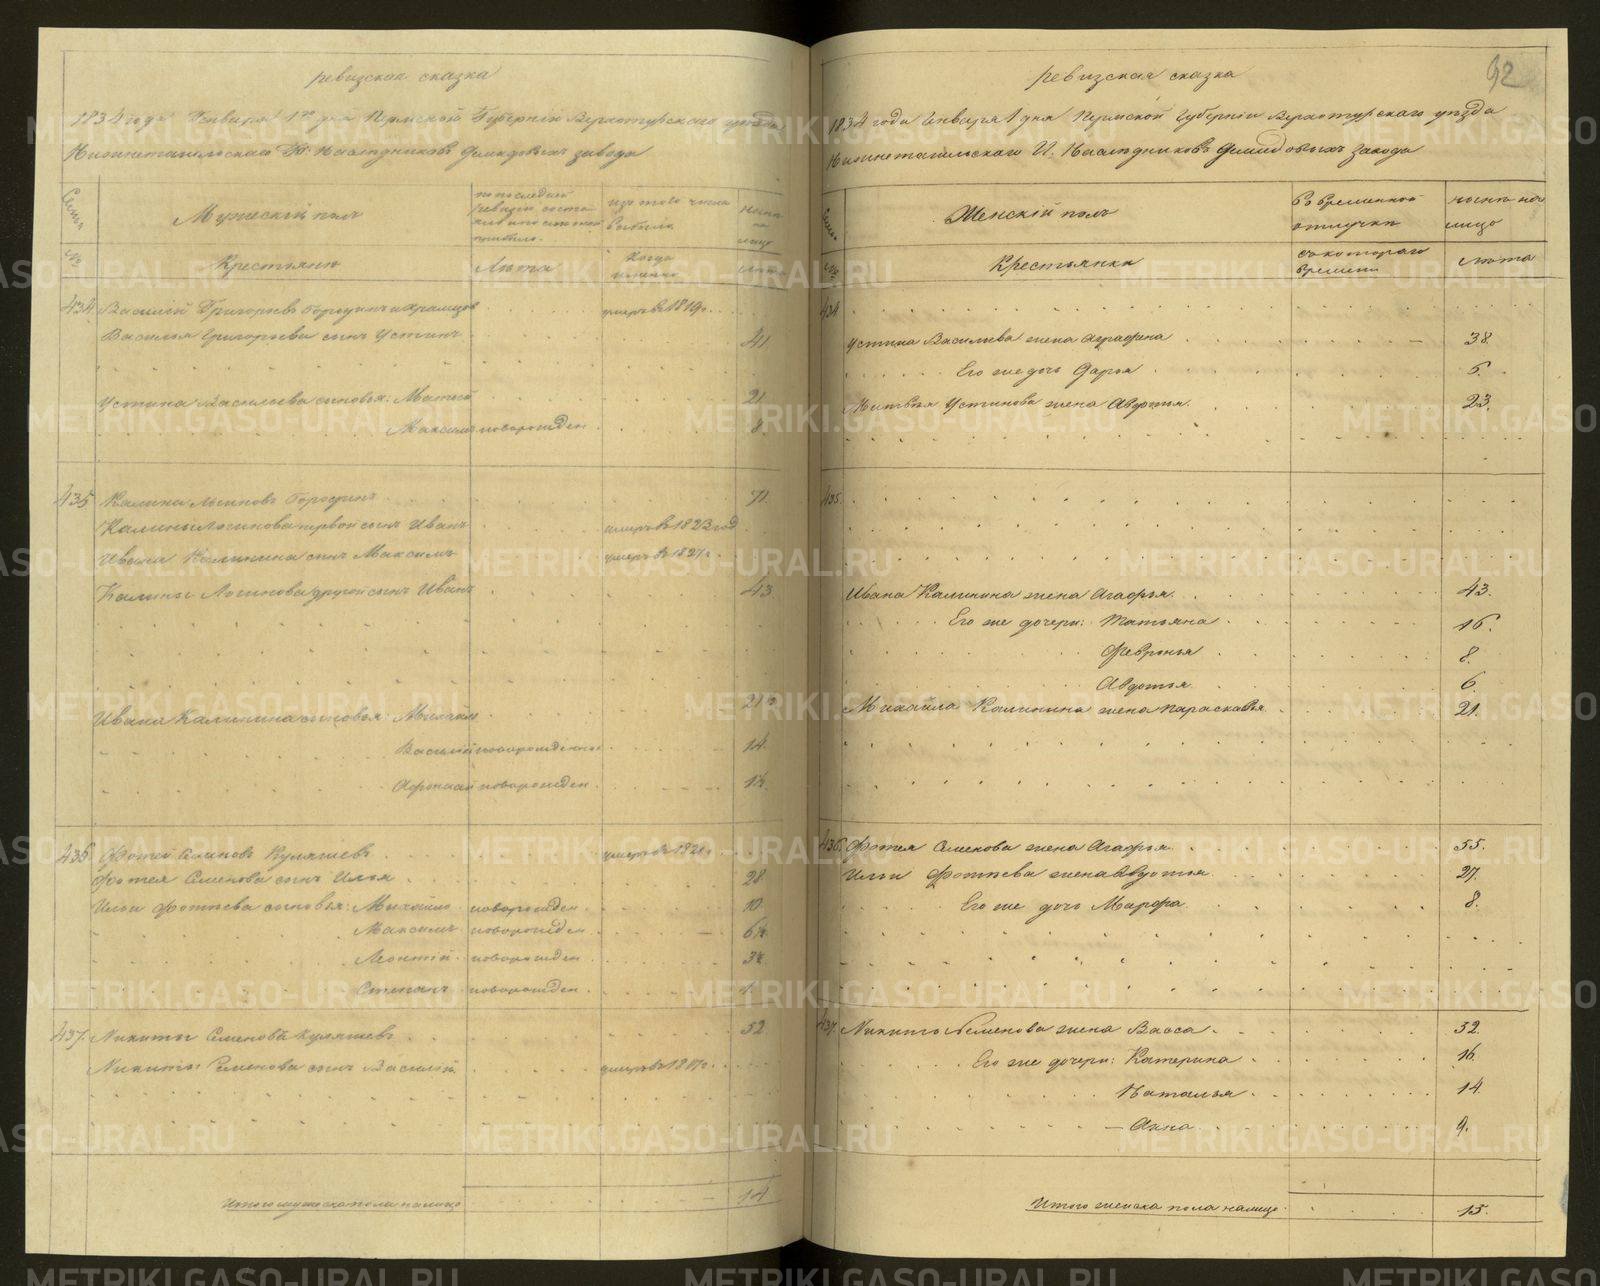 ревизская сказка
1834 года Генваря 1го дня Пермской Губернии Верхотурского уезда
Нижнетагильскаго Наследниковъ Демидовыхъ завода
Мужескiй полъ
по последней ревизiи состояло и после оной прибыло
изъ того числа выбыло
ныне на лицо
Семьи
№
Крестьяне
Лета
Когда именно
лета
434 Василiй Григорьевъ Бородинъ умеръ в 1819г.
Василья Григорьева сынъ Устинъ 41
Устина Васильева сыновья: Матвей 21
Максимъ новорожден 8
435 Калина Логиновъ Бородинъ 71
Калины Логинова первой сынъ Иванъ умеръ в 1823 год
Ивана Калинина сынъ Максимъ умеръ в 1827 г.
Калины Логинова другой сынъ Иванъ 43
Ивана Калинина сыновья: Михайло 21
Василiй новорожденны 14
Афонасiй новорожден
436 Фотей Семеновъ Куляшевъ умеръ в
Фотея Семенова сынъ Илья 28
Ильи Фотеева сыновья: Михайло новорожден 10
Максимъ новорожден 6½
Леонтiй новорожден
Степанъ новорожден 1
437 Никиты Семеновъ Куляшевъ 52
Никиты Семенова сынъ Василiй умеръ в
Итого мужеска пола налицо 14
92
ревизская сказка
1834 года Января 1 дня Пермской Губернiи Верхотурскаго уезда
Нижнетагильскаго Наследниковъ Демидовыхъ завода
Семьи
№
Женскiй полъ
Во временной отлучке
ныне на лицо
Крестьянки
съ котораго времени
лета
434
Устина Васильева жена Аграфина 38
Его же дочь Дарья 6.
Матвея Устинова жена Авдотья. 23.
435
Ивана Калинина жена Агафья. 43.
Его же дочери: Татьяна 16.
Февронья 8.
Авдотья 6
Михайла Калинина жена Парасковья 21.
436 Фотея Семенова жена Агафья 55.
Ильи Фотеева жена Авдотья 27.
Его же дочь Марфа 8.
437 Никиты Семенова жена Васса 52.
Его же дочери: Катерина 16.
Наталья 14.
Анна 9.
Итого женска пола налицо 15.
METRIKI.GASO-URAL.RU